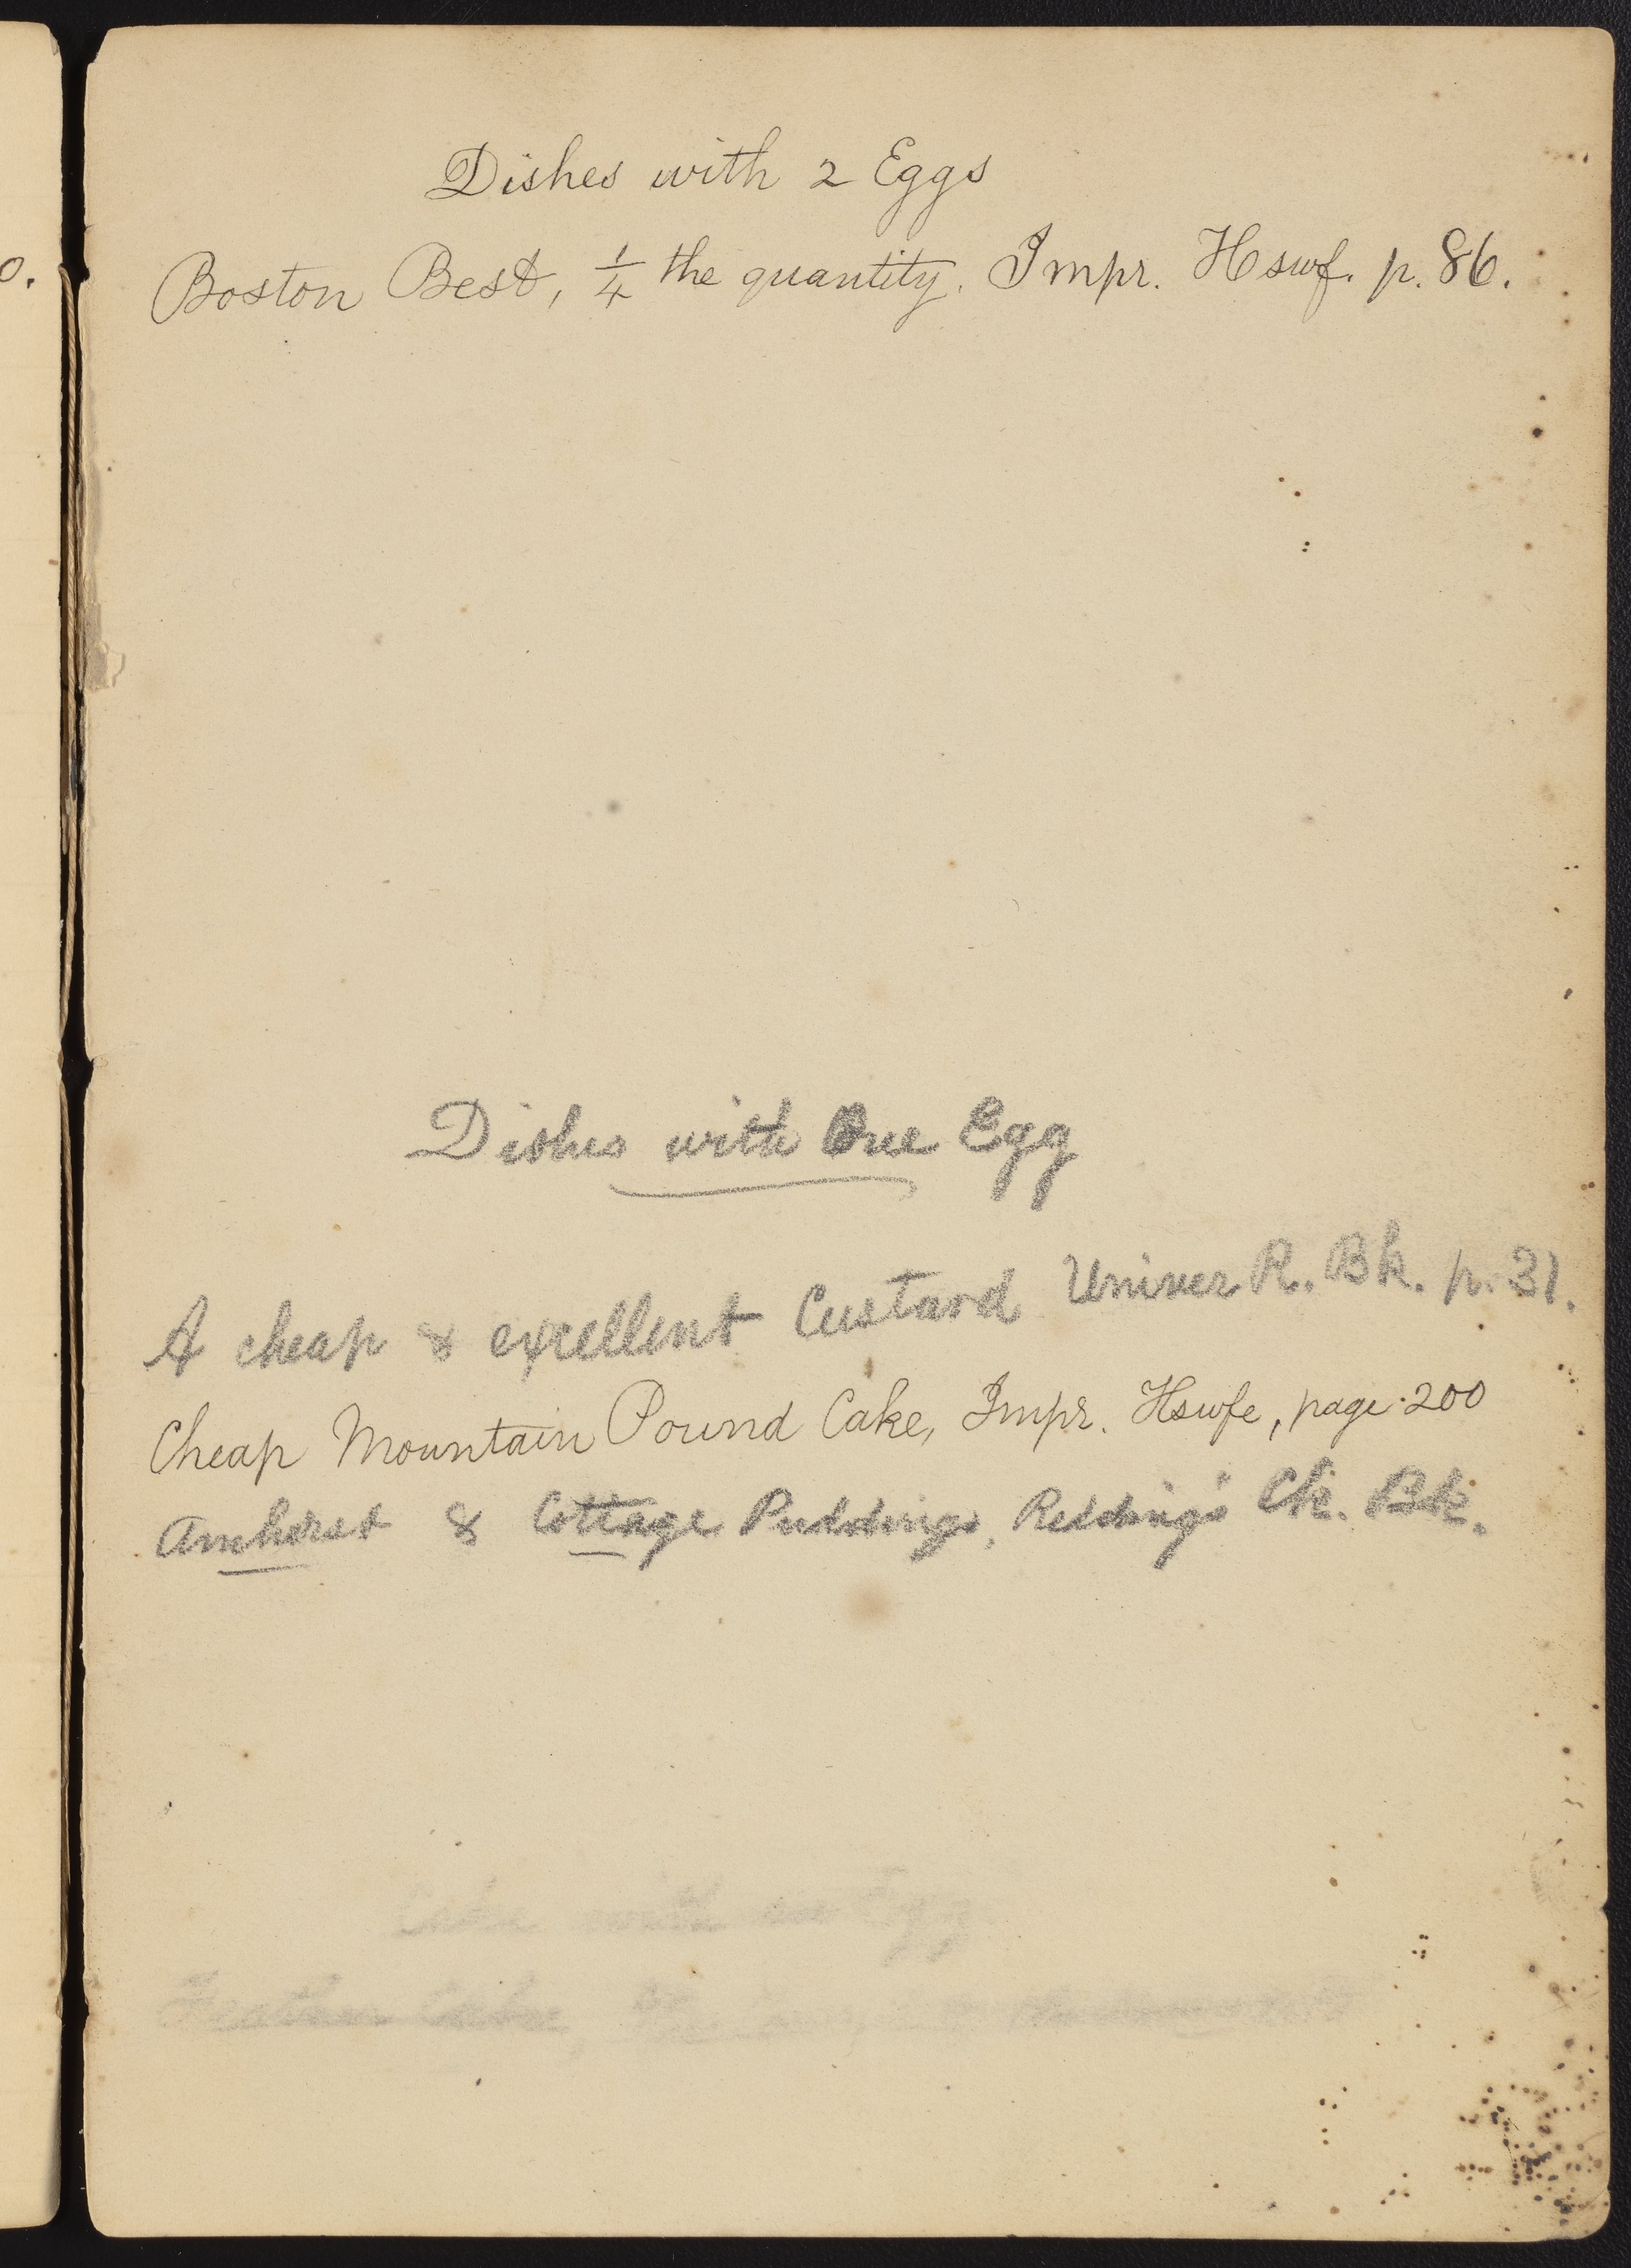 Dishes with 2 Eggs
Boston Best, 1/4 the quantity. Impr. Hswf. p. 86.
Dishes with One Egg
A cheap & excellent Custard Univer R. Bk. p. 31.
Cheap Mountain Pound Cake, Impr. Hswfe, page 200
Amherst & Cottage Puddings, Redding's Ck. Bk.
with Egg
Feather Cake